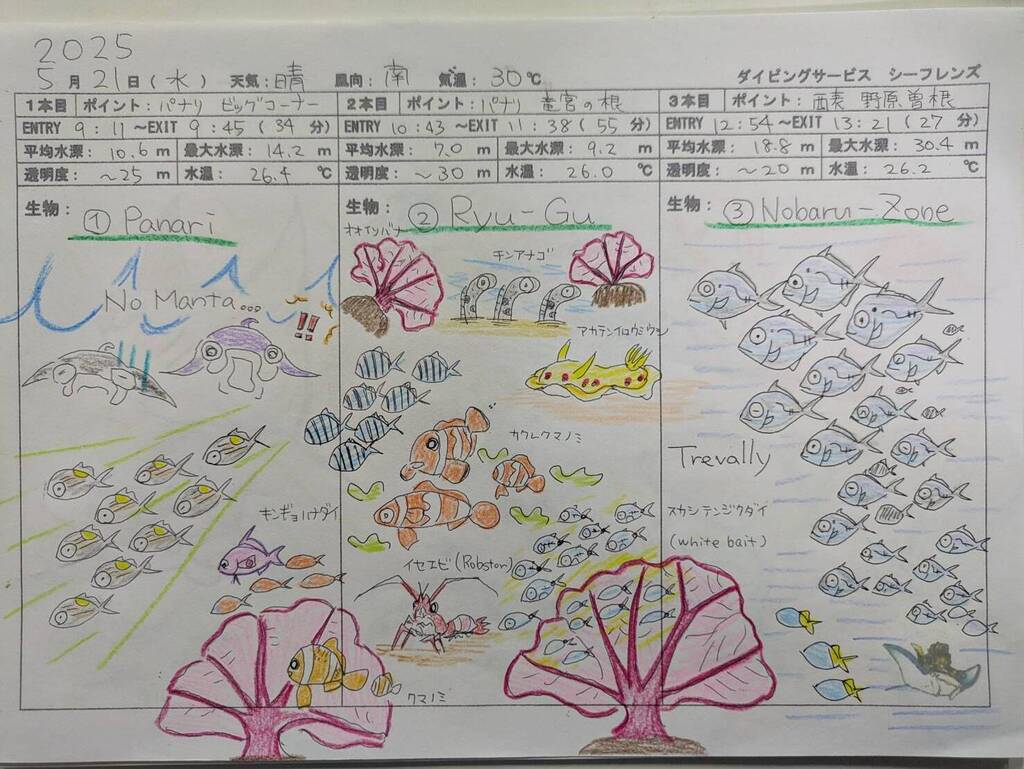 2025
5月21日(水) 天気:晴 風向:南 気温:30℃
ダイビングサービス シーフレンズ
1本目 ポイント:パナリ ビッグコーナー
ENTRY 9:11~EXIT 9:45(34分)
平均水深:10.6m 最大水深:14.2m
透明度:~25m 水温:26.4℃
生物:① Panari
No Manta...
!!
キンギョハナダイ
2本目 ポイント:パナリ 竜宮の根
ENTRY 10:43~EXIT 11:38(55分)
平均水深:7.0m 最大水深:9.2m
透明度:~30m 水温:26.0℃
生物:② Ryu-Gu
オオイソバナ
チンアナゴ
アカテンイロウミウシ
カクレクマノミ
イセエビ(Robster)
クマノミ
3本目 ポイント:西表 野原曽根
ENTRY 12:54~EXIT 13:21(27分)
平均水深:18.8m 最大水深:30.4m
透明度:~20m 水温:26.2℃
生物:③ Nobaru-Zone
Trevally
スカシテンジクダイ
(white bait)